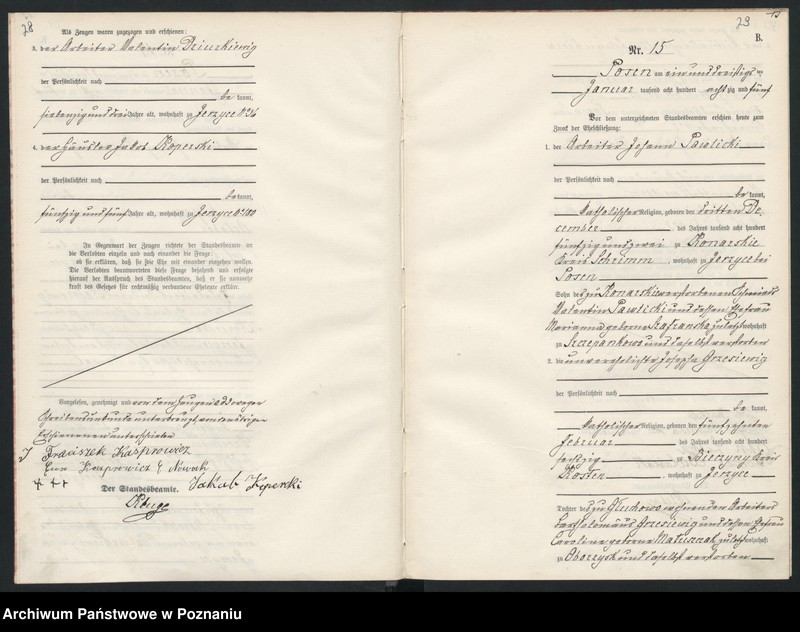 28
Als Zeugen waren zugezogen und erschienen:
3. der Arbeiter Valentin Dziurkiewig
der Persönlichkeit nach
be kannt,
siebenzig und drei Jahre alt, wohnhaft zu Jerzyce N° 36
4. der Häusler Jakob Koperski
der Persönlichkeit nach
be kannt,
fünfzig und fünf Jahre alt, wohnhaft zu Jerzyce N° 180
In Gegenwart der Zeugen richtete der Standesbeamte an
die Verlobten einzeln und nach einander die Frage:
ob sie erklären, daß sie die Ehe mit einander eingehen wollen.
Die Verlobten beantworteten diese Frage bejahend und erfolgte
hierauf der Ausspruch des Standesbeamten, daß er sie nunmehr
kraft des Gesetzes für rechtmäßig verbundene Eheleute erkläre.
Vorgelesen, genehmigt und von dem Zeugen ad 3 wegen
Schreibensunkunde unterkreuzt, von den übrigen
Erschienenen unterschrieben
Franciszek Kasprowicz
Kasprowicz Nowak
+ ++
Jakob Koperski
Der Standesbeamte.
29
15
B.
Nr. 15
Posen am ein und dreißigsten
Januar tausend acht hundert achtzig und fünf
Vor dem unterzeichneten Standesbeamten erschien heute zum
Zweck der Eheschließung:
1. der Arbeiter Johann Pawlicki
der Persönlichkeit nach
be kannt,
katholischer Religion, geboren den dritten De-
cember des Jahres tausend acht hundert
fünfzig und zwei zu Konarskie
Kreis Schrimm, wohnhaft zu Jerzyce bei
Posen
Sohn des zu Konarskie verstorbenen Schmieds
Valentin Pawlicki und dessen Ehefrau
Marianna geborne Szafranska zuletzt wohnhaft
zu Szczepankowo und daselbst verstorben
2. die unverehelichte Josepha Grzesiewig
der Persönlichkeit nach
be kannt,
katholischer Religion, geboren den fünfzehnten
Februar des Jahres tausend acht hundert
sechzig zu Bieczyny Kreis
Kosten, wohnhaft zu Jerzyce
Tochter des zu Gluchowo wohnenden Arbeiters
Bartholomäus Grzesiewig und dessen Ehefrau
Carolina geborne Matuszak zuletzt wohnhaft
zu und daselbst verstorben
Archiwum Państwowe w Poznaniu